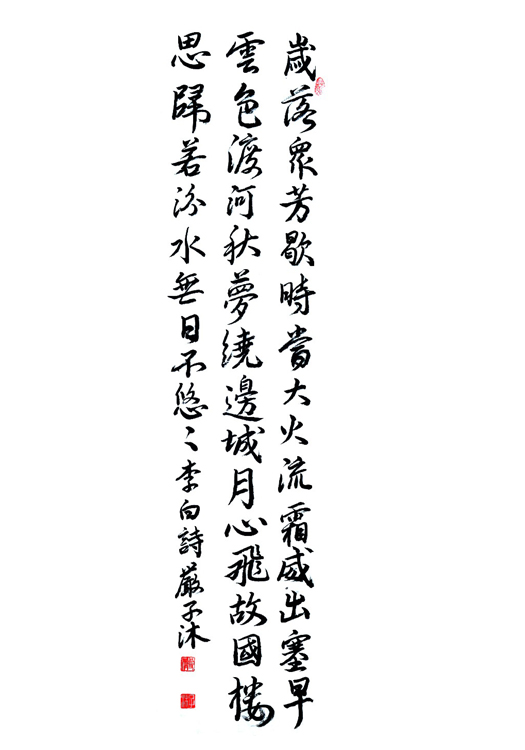 歲落衆芳歇時當大火流霜威出塞早
雲色渡河秋夢繞邊城月心飛故國樓
思歸若汾水無日不悠〻李白詩嚴子沐